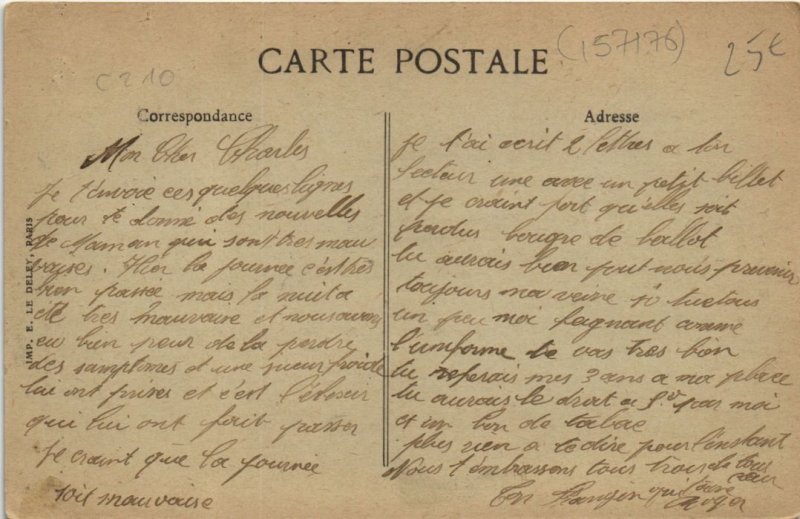 (157176)
25€
C210
CARTE POSTALE
Correspondance
Adresse
IMP. E. LE DELEY, PARIS
Mon Cher Charles
Je t'envoie ces quelques lignes
pour te donné des nouvelles
de Maman qui sont tres mau
vaises. Hier la journée c'est tres
bien passée mais la nuit a
été tres mauvaise et nous avons
eu bien peur de la perdre
des samptmes et une sueur froide
lui ont prises et c'est
qui lui ont fait passer
Je craint que la journée
soit mauvaise
Je t'ai ecrit 2 lettres a ton
secteur une avec un petit billet
et je craint fort qu'elles soit
perdus bougre de ballot
tu aurais bien pout nous prevenir
toujours ma veine si tu etais
un peu moi feignant comme
l'uniforme te vas tres bien
tu referais mes 3 ans a ma place
tu aurais le droit a par moi
et un bon de tabac
plus rien a te dire pour l'instant
Nous t'embrassons tous trois de tous
cœur
Ton Frangin qui t'aime
Roger